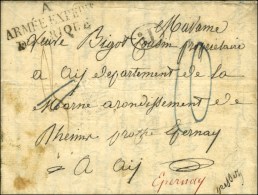 A
ARMÉE EXPÉD
D'AFRIQUE
Madame
Veuve Bigot Cousin propriétaire
a aij département de la
Marne arondissement de
Rheims proche Epernay
A Aij
Epernay